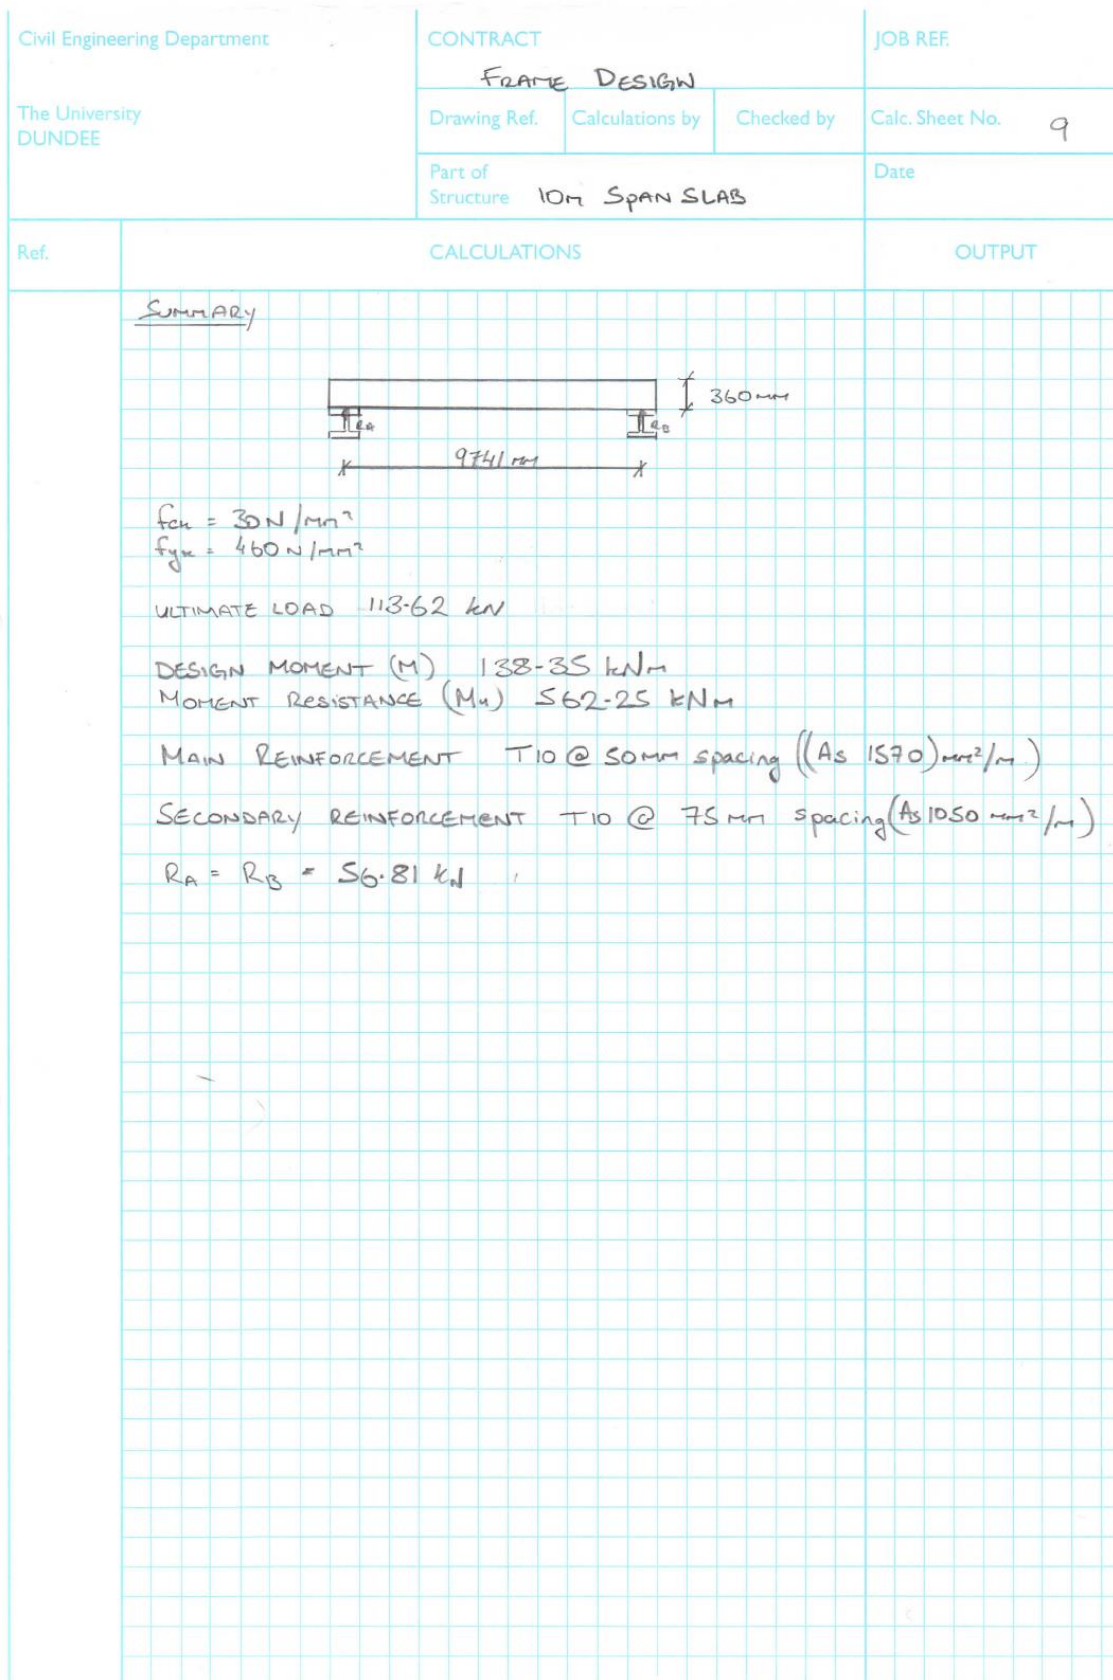 Civil Engineering Department
CONTRACT
JOB REF.
FRAME DESIGN
The University
DUNDEE
Drawing Ref.
Calculations by
Checked by
Calc. Sheet No. 9
Part of
Structure 10m SPAN SLAB
Date
Ref.
CALCULATIONS
OUTPUT
SUMMARY
360mm
RA
RB
9741 mm
fck = 30N/mm²
fyk = 460N/mm²
ULTIMATE LOAD 113.62 kN
DESIGN MOMENT (M) 138.35 kNm
MOMENT RESISTANCE (Mu) 562.25 kNm
MAIN REINFORCEMENT T10 @ 50mm spacing ((As 1570)mm²/m)
SECONDARY REINFORCEMENT T10 @ 75mm spacing (As 1050 mm²/m)
RA = RB = 56.81 kN